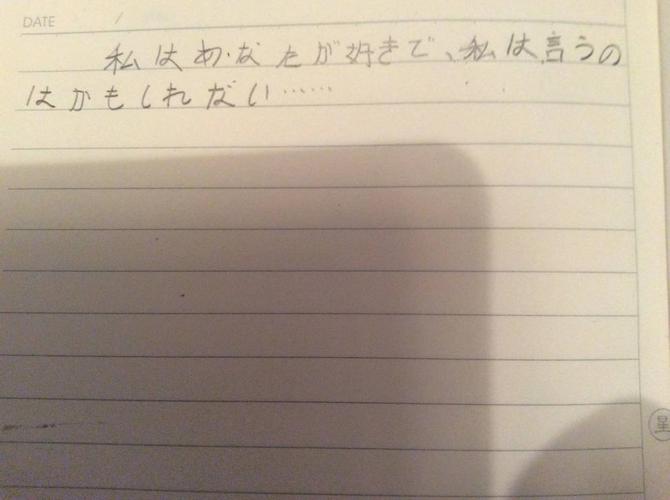 DATE /
私はあなたが好きで、私は言うの
はかもしれない……
呈